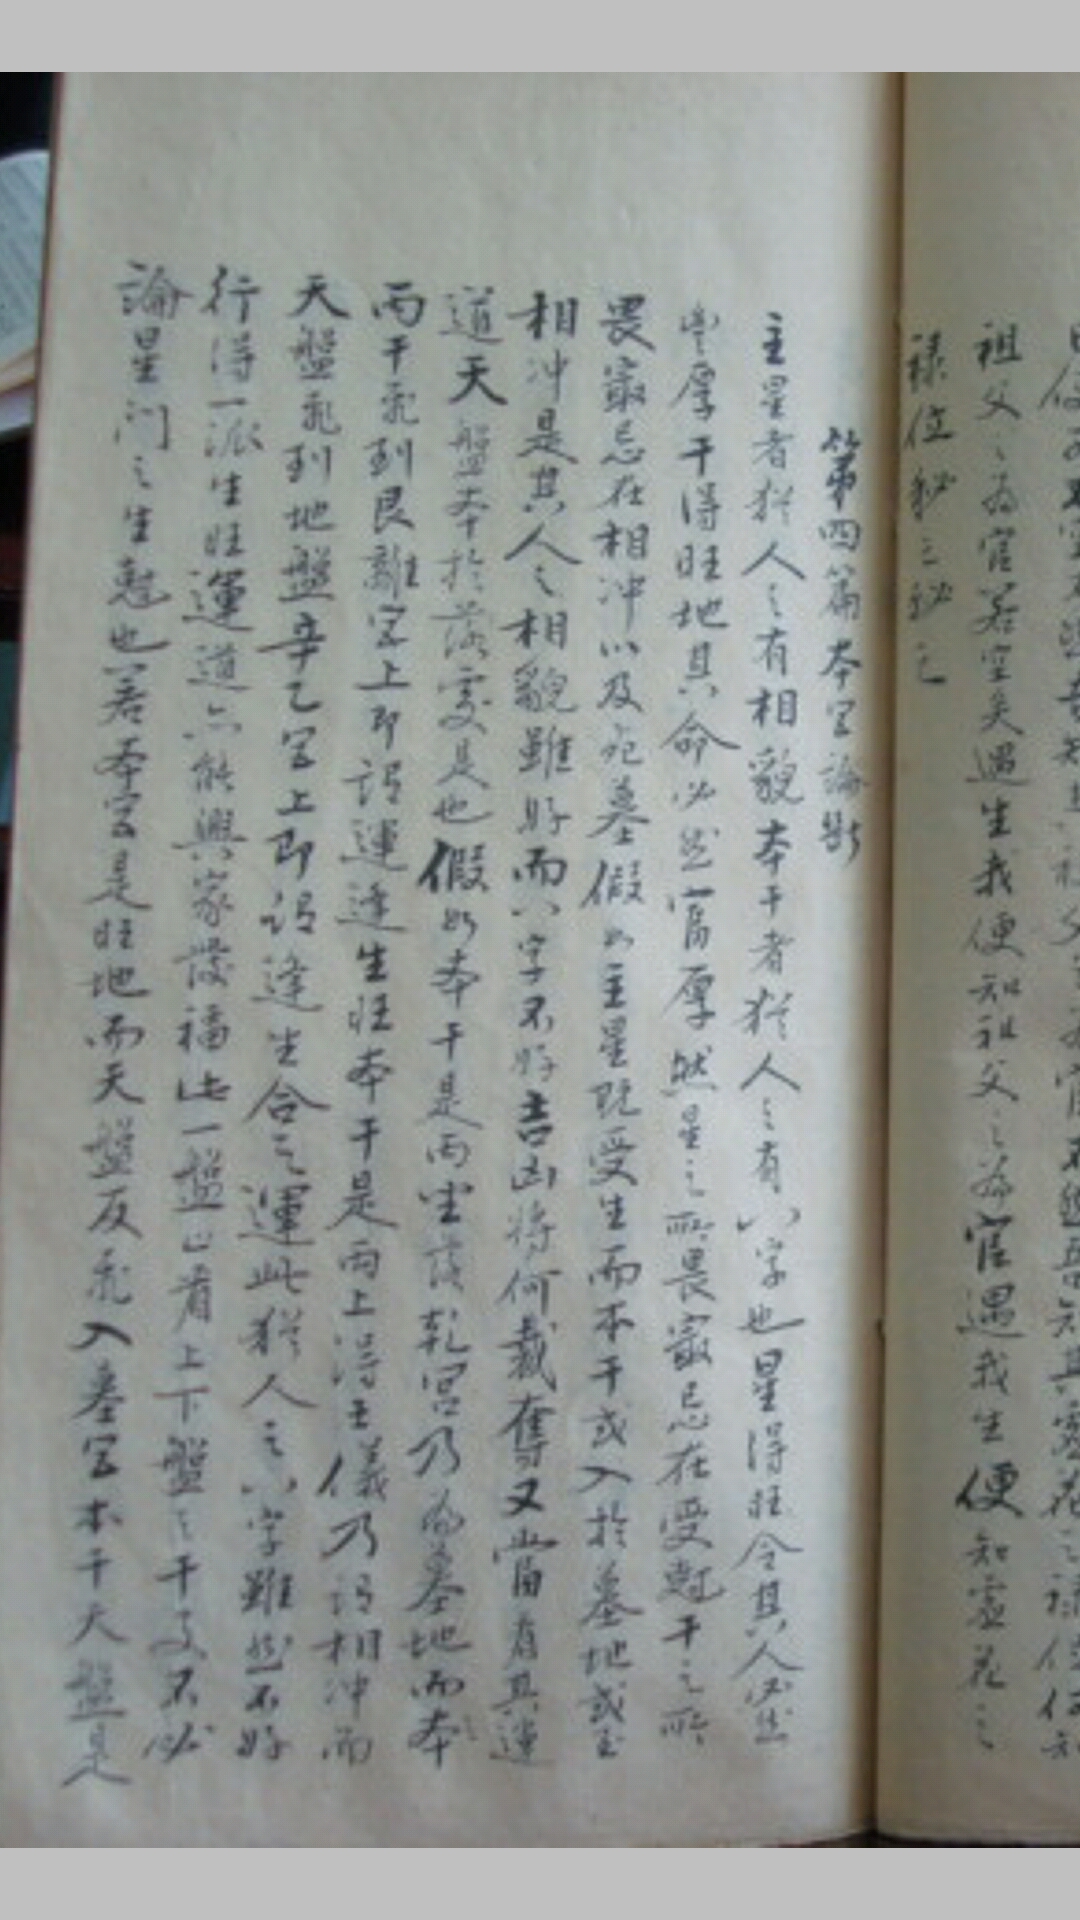 祖父之為官若空矣遇生我便知祖父之為官遇我生便知虛花之
祿位秘之秘之
第四篇本宮論斷
主星者犹人之有相貌本干者犹人之有八字也星得旺令其人必然
厚干得旺地其命必然富厚然星之所畏最忌在受尅干之所
畏最忌在相冲以及死墓假如主星既受生而本干或入於墓地或至
相冲是其人之相貌雖好而八字不好吉凶將何裁奪又當看其運
道天盤本於落處是也假如本干是丙坐該乾宮乃為墓地而本
丙干飛到艮離宮上即謂運逢生旺本干是丙上得壬儀乃謂相冲而
天盤飛到地盤辛乙宮上即謂逢生合之運此犹人之八字雖然不好
行得一派生旺運道亦能興家發福此一盤止看上下盤之干支不必
論星門之生尅也若本宮是旺地而天盤反飛入墓宮本干天盤是